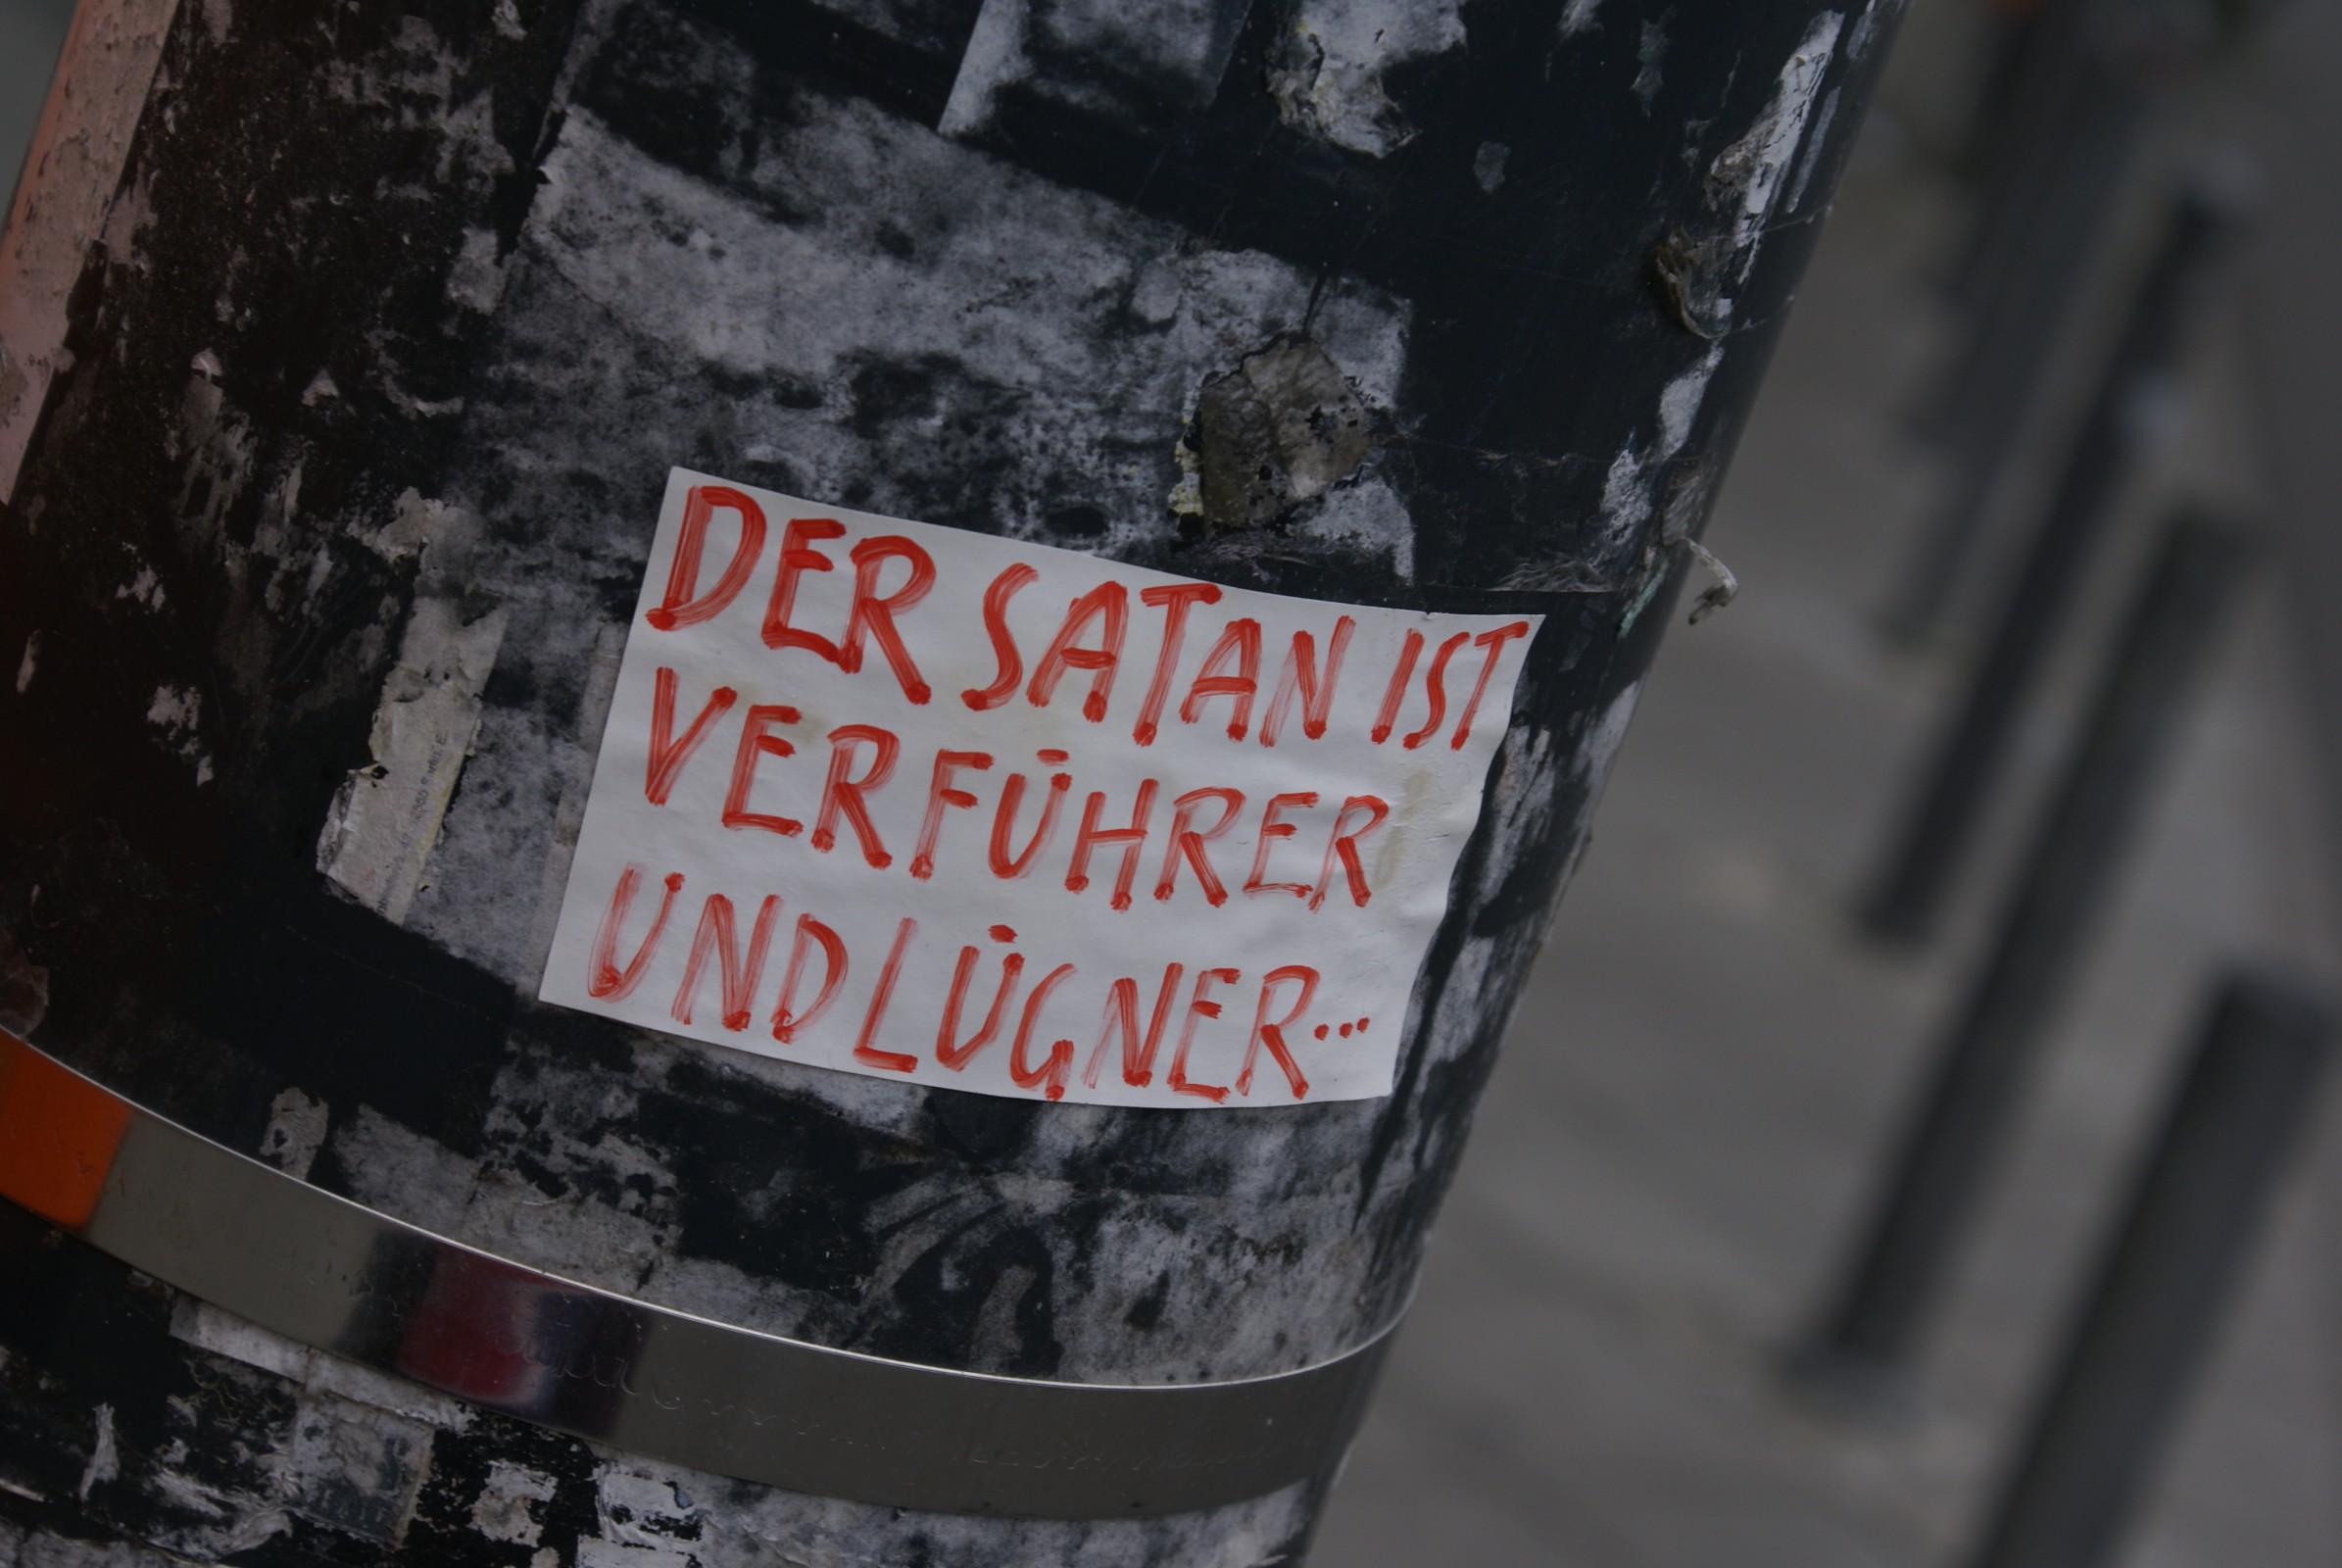 DER SATAN IST
VERFÜHRER
UND LÜGNER...